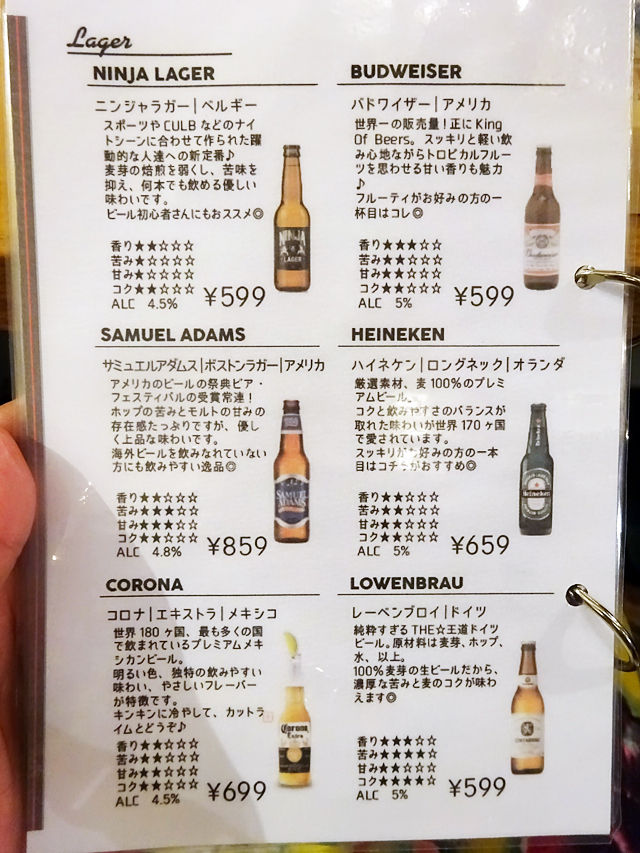 Lager
NINJA LAGER
ニンジャラガー|ベルギー
スポーツやCULB などのナイ
トシーンに合わせて作られた躍
動的な人達への新定番♪
麦芽の焙煎を弱くし、苦味を
抑え、何本でも飲める優しい
味わいです。
ビール初心者さんにもおススメ◎
香り★★☆☆☆
苦み★☆☆☆☆
甘み★☆☆☆☆
コク★★☆☆☆
ALC 4.5%
¥599
NINJA
LAGER
BUDWEISER
バドワイザー|アメリカ
世界一の販売量!正にKing
Of Beers。スッキリと軽い飲
み心地ながらトロピカルフルー
ツを思わせる甘い香りも魅力
♪
フルーティがお好みの方の一
杯目はコレ◎
香り★★★☆☆
苦み★★☆☆☆
甘み★★☆☆☆
コク★★☆☆☆
ALC 5%
¥599
Budweiser
SAMUEL ADAMS
サミュエルアダムス|ボストンラガー|アメリカ
アメリカのビールの祭典ビア・
フェスティバルの受賞常連!
ホップの苦みとモルトの甘みの
存在感たっぷりですが、優し
く上品な味わいです。
海外ビールを飲みなれていない
方にも飲みやすい逸品◎
香り★★☆☆☆
苦み★★★☆☆
甘み★★★☆☆
コク★★☆☆☆
ALC 4.8%
¥859
SAMUEL
ADAMS
HEINEKEN
ハイネケン|ロングネック|オランダ
厳選素材、麦100%のプレミ
アムビール。
コクと飲みやすさのバランスが
取れた味わいが世界170ヶ国
で愛されています。
スッキリがお好みの方の一本
目はコチラがおすすめ◎
香り★★☆☆☆
苦み★★☆☆☆
甘み★★☆☆☆
コク★★☆☆☆
ALC 5%
¥659
Heineken
CORONA
コロナ|エキストラ|メキシコ
世界180ヶ国、最も多くの国
で飲まれているプレミアムメキ
シカンビール。
明るい色、独特の飲みやすい
味わい、やさしいフレーバー
が特徴です。
キンキンに冷やして、カットラ
イムとどうぞ♪
香り★★☆☆☆
苦み★☆☆☆☆
甘み★☆☆☆☆
コク★☆☆☆☆
ALC 4.5%
¥699
Corona
Extra
LOWENBRAU
レーベンブロイ|ドイツ
純粋すぎるTHE☆王道ドイツ
ビール。原材料は麦芽、ホップ、
水、以上。
100%麦芽の生ビールだから、
濃厚な苦みと麦のコクが味わ
えます◎
香り★★★☆☆
苦み★★★★★
甘み★★☆☆☆
コク★★★★☆
ALC 5%
¥599